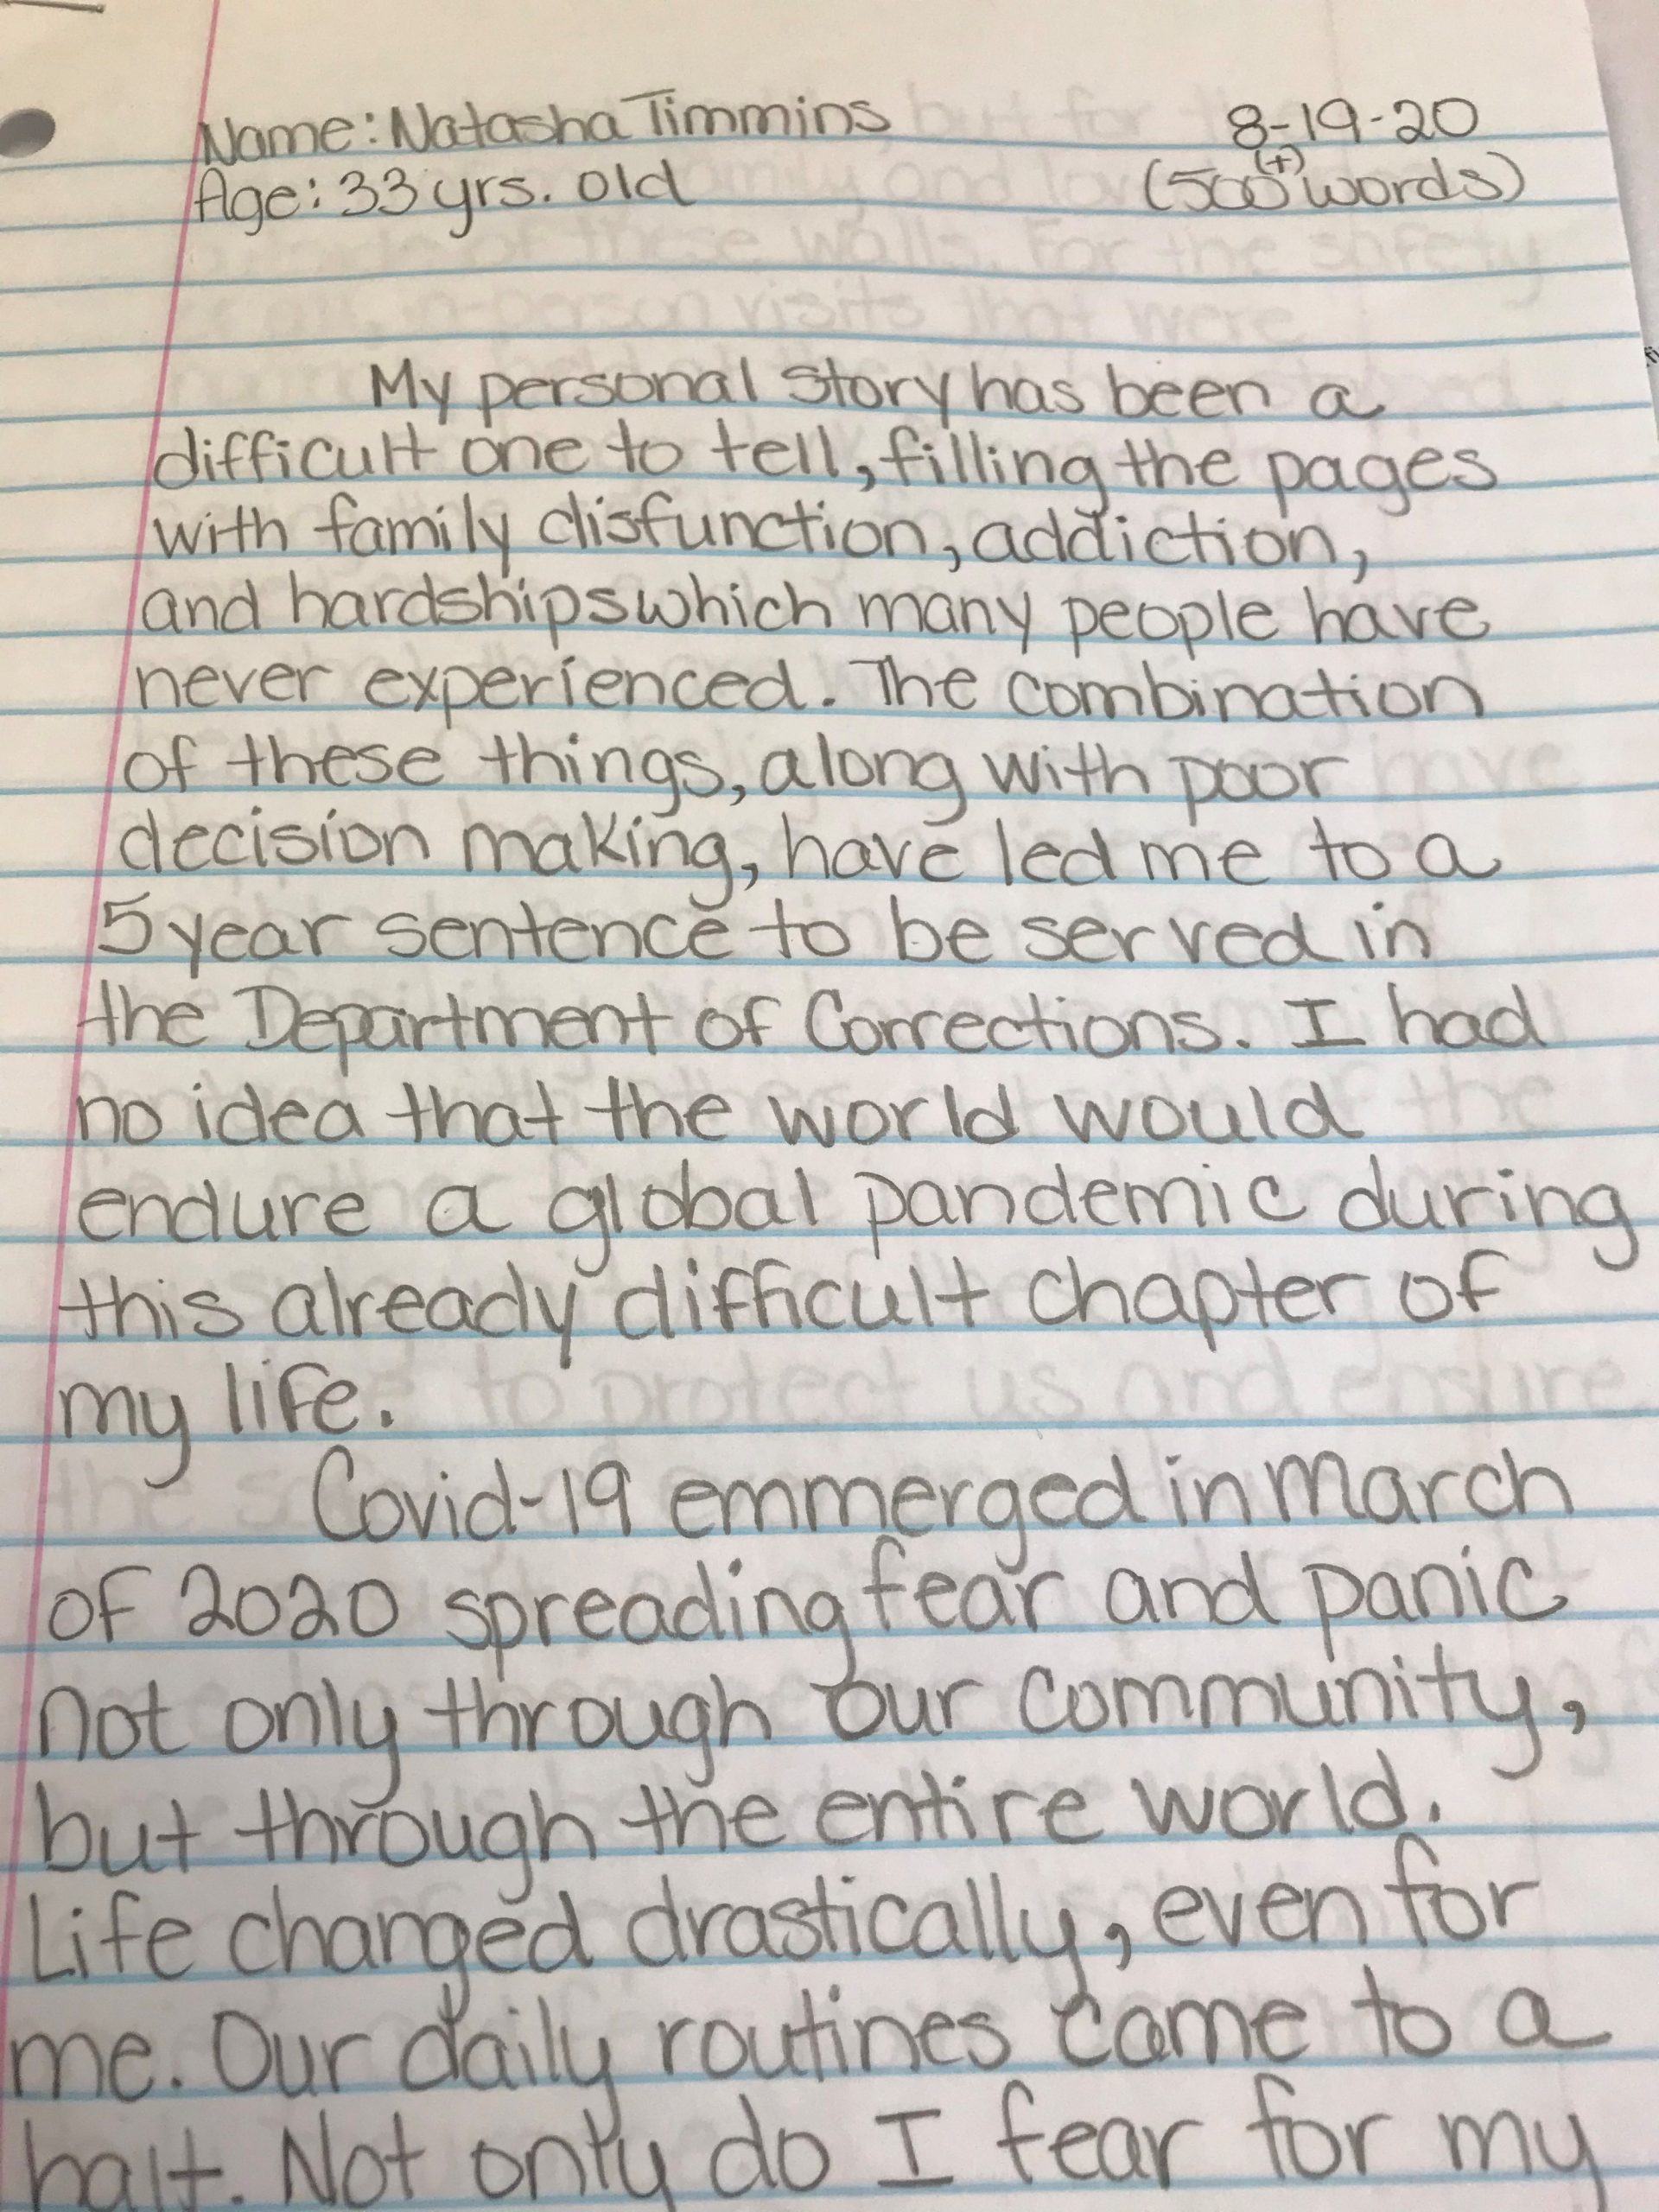 Name: Natasha Timmins
8-19-20
Age: 33 yrs. old
(500(+) words)
My personal story has been a
difficult one to tell, filling the pages
with family disfunction, addiction,
and hardships which many people have
never experienced. The combination
of these things, along with poor
decision making, have led me to a
5 year sentence to be served in
the Department of Corrections. I had
no idea that the world would
endure a global pandemic during
this already difficult chapter of
my life.
Covid-19 emmerged in March
of 2020 spreading fear and panic
not only through our community,
but through the entire world.
Life changed drastically, even for
me. Our daily routines came to a
halt. Not only do I fear for my